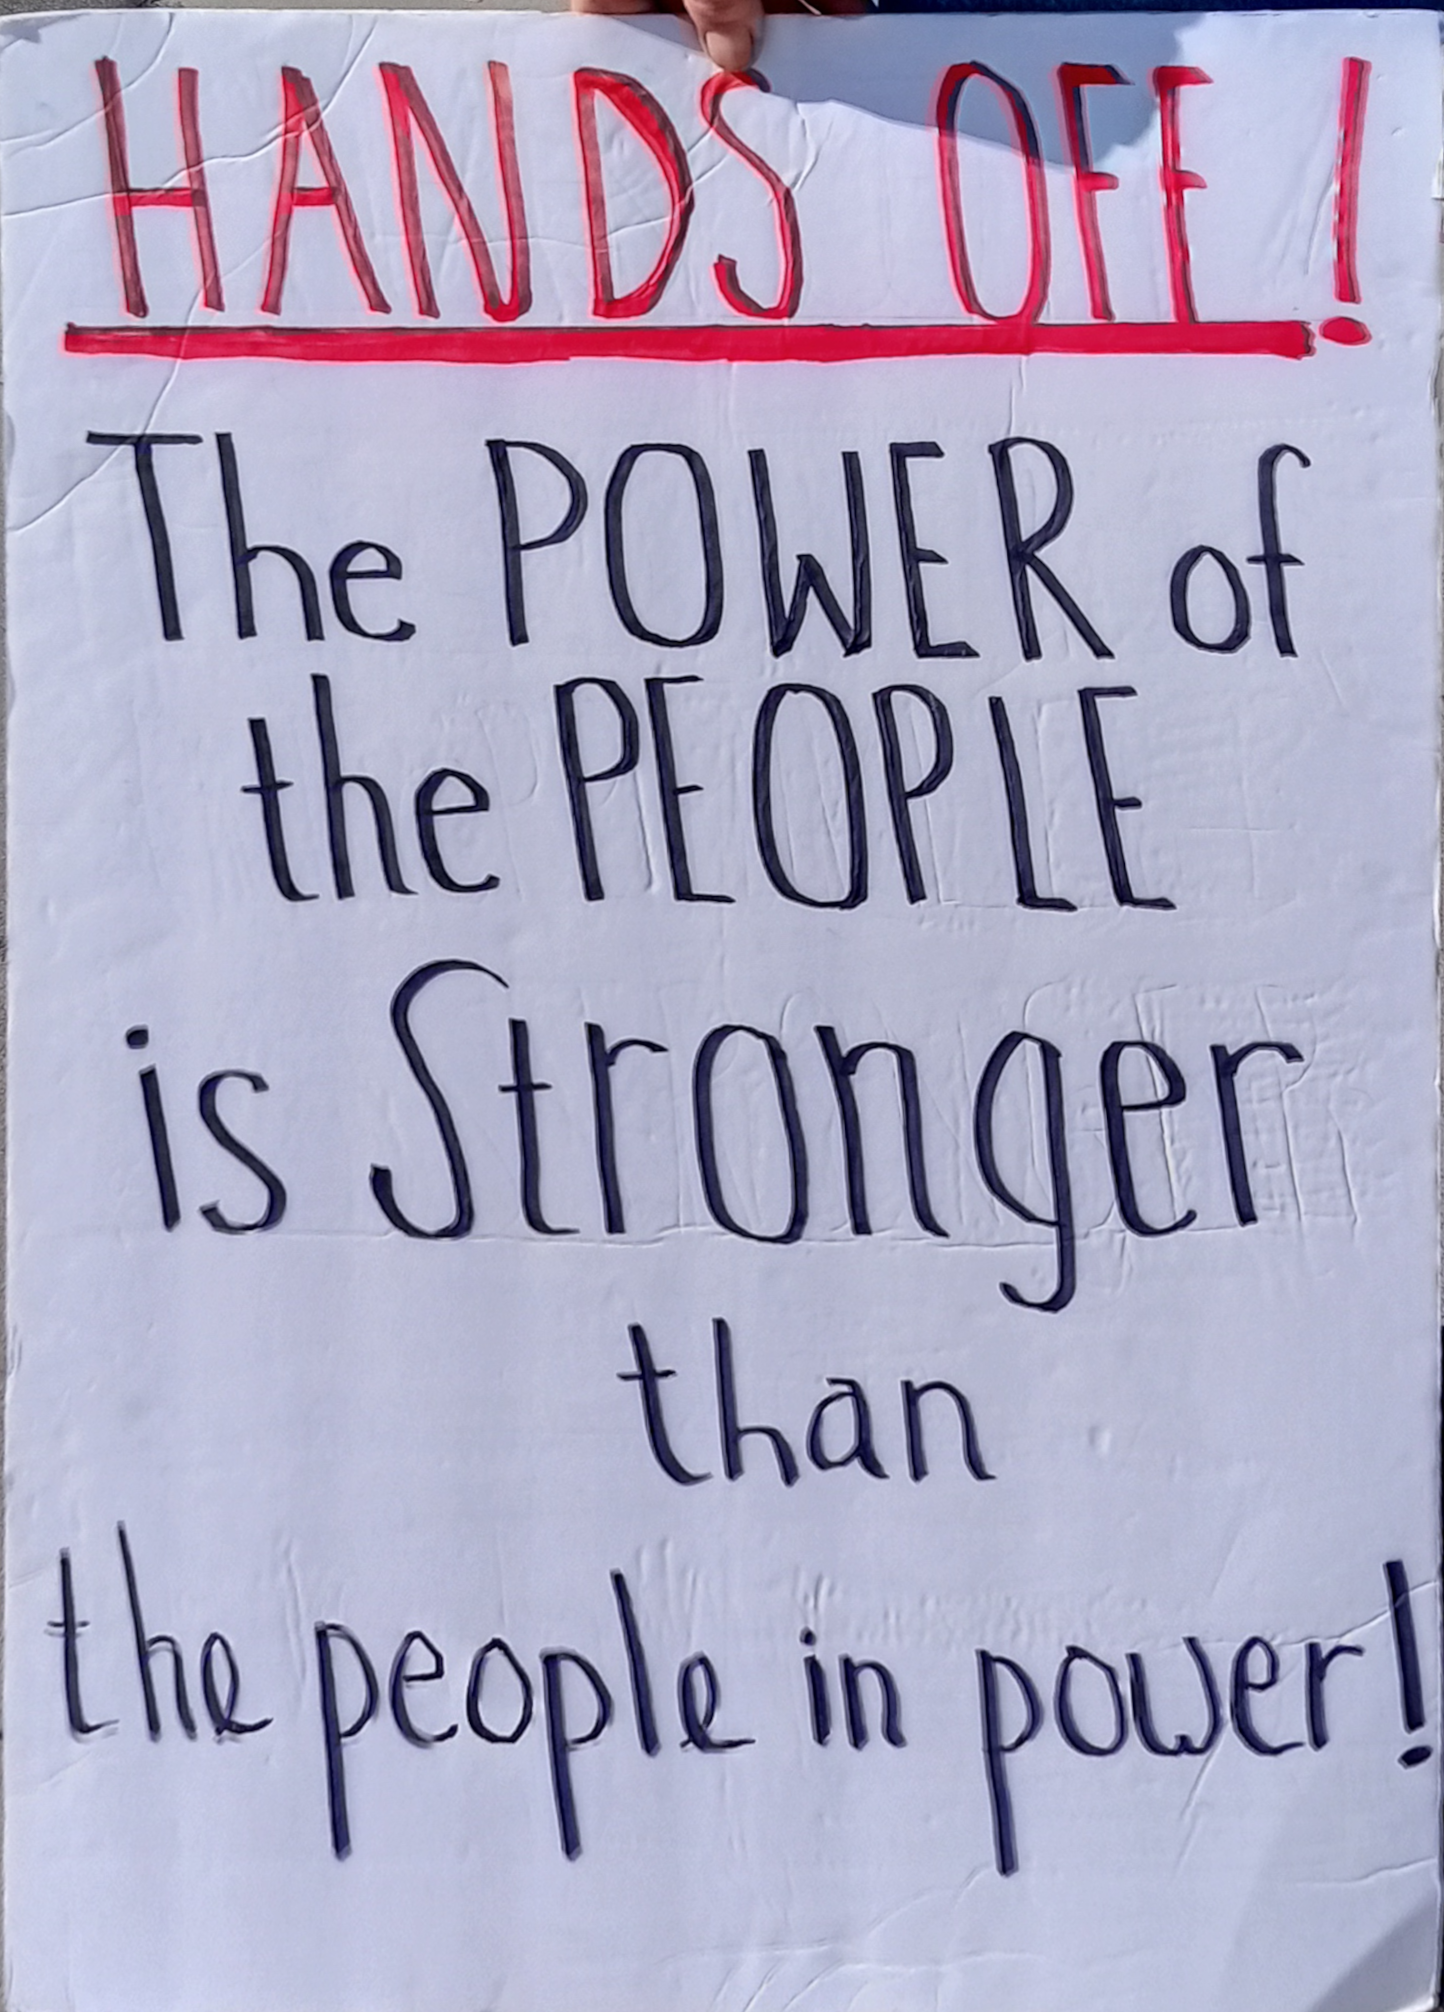 HANDS OFF!
The POWER of
the PEOPLE
is Stronger
than
the people in power!